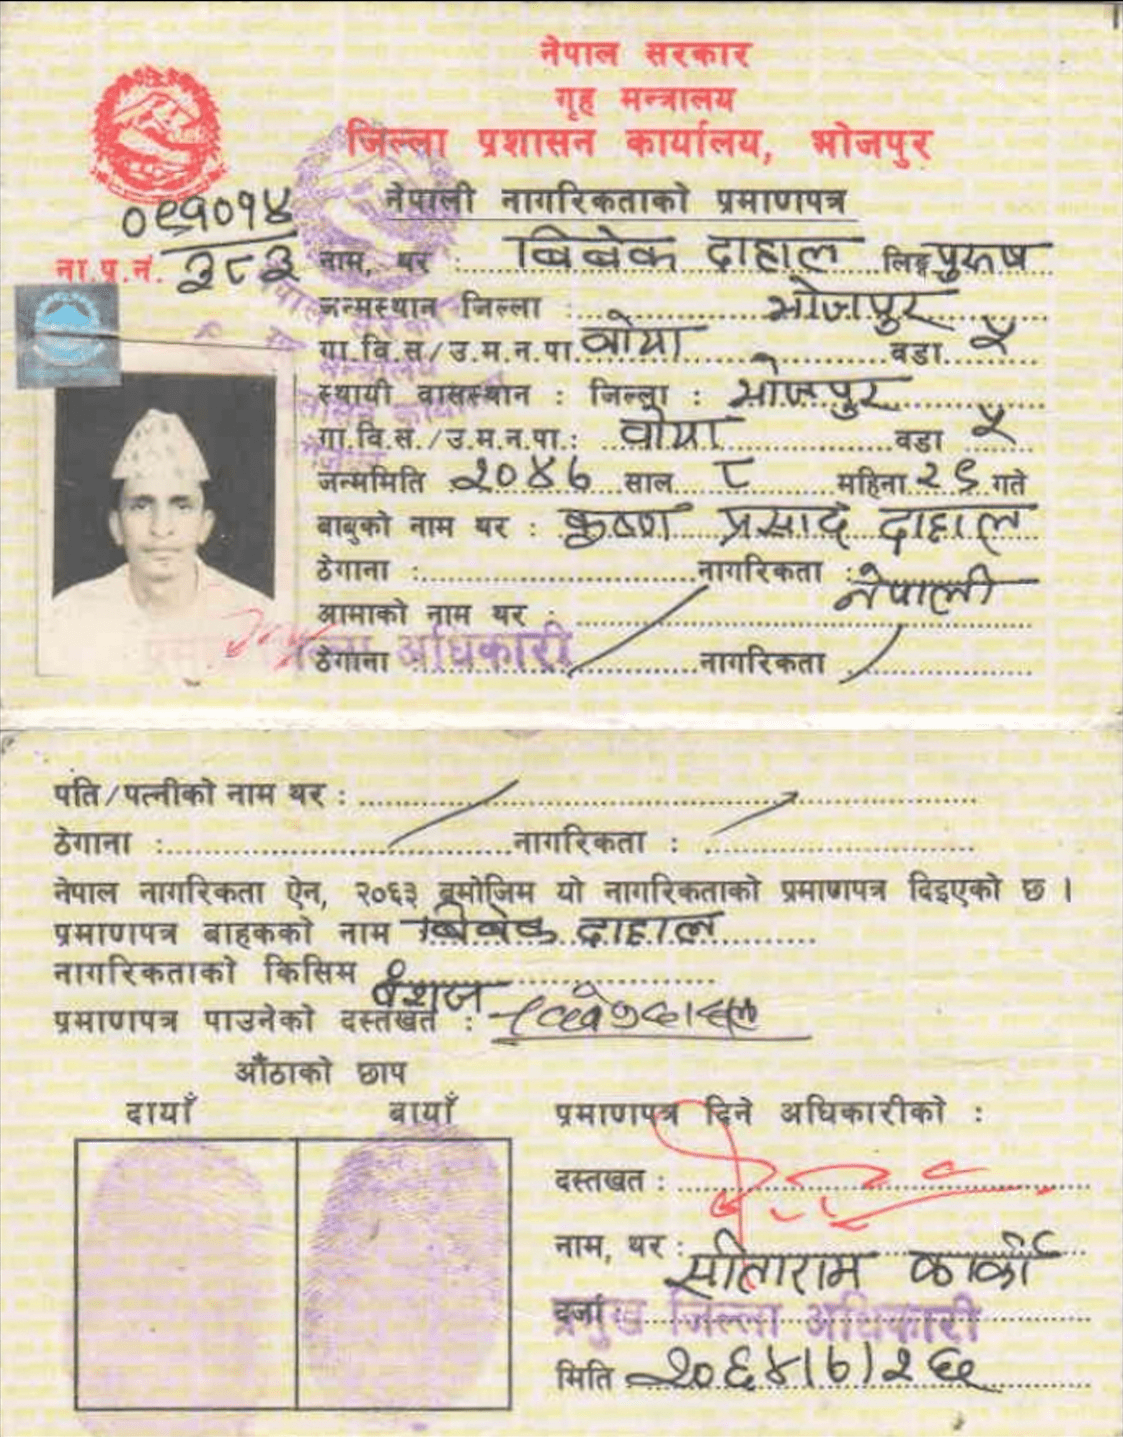 नेपाल सरकार
गृह मन्त्रालय
जिल्ला प्रशासन कार्यालय, भोजपुर
नेपाली नागरिकताको प्रमाणपत्र
ना.प्र.नं. ०५१०१४ ३८३
नाम, थर : बिबेक दाहाल लिङ्ग पुरुष
जन्मस्थान जिल्ला : भोजपुर
गा.वि.स/उ.म.न.पा. वडा ५
स्थायी वासस्थान : जिल्ला : भोजपुर
गा.वि.स./उ.म.न.पा.: वडा ५
जन्ममिति २०४७ साल ८ महिना २६ गते
बाबुको नाम थर : कृष्ण प्रसाद दाहाल
ठेगाना : नागरिकता : नेपाली
आमाको नाम थर :
ठेगाना नागरिकता
प्रमुख जिल्ला अधिकारी
पति/पत्नीको नाम थर :
ठेगाना : नागरिकता :
नेपाल नागरिकता ऐन, २०६३ बमोजिम यो नागरिकताको प्रमाणपत्र दिइएको छ ।
प्रमाणपत्र बाहकको नाम बिबेक दाहाल
नागरिकताको किसिम बंशज
प्रमाणपत्र पाउनेको दस्तखत :
औंठाको छाप
दायाँ बायाँ
प्रमाणपत्र दिने अधिकारीको :
दस्तखत :
नाम, थर : सीताराम कार्की
दर्जा : प्रमुख जिल्ला अधिकारी
मिति २०६४।७।२६